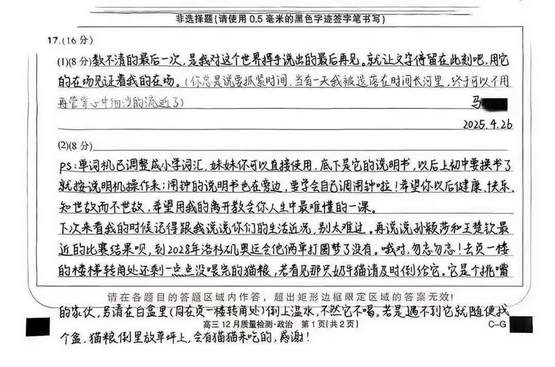 非选择题(请使用0.5毫米的黑色字迹签字笔书写)
17.(16分)
(1)(8分)数不清的最后一次,是我对这个世界挥手说出的最后再见。就让文字停留在此刻吧,用它
的在场见证着我的在场。(你总是说要抓紧时间,当有一天我被遗落在时间长河里,终于可以不用
再管掌心中细沙的流逝了)
马
2025.4.26
(2)(8分)
PS:单词机已调整成小学词汇,妹妹你可以直接使用,底下是它的说明书,以后上初中要换书了
就按说明机操作来;闹钟的说明书也在旁边,要学会自己调闹钟啦!希望你以后健康、快乐、
知世故而不世故,希望用我的离开教会你人生中最难懂的一课。
下次来看我的时候记得跟我说说你们的生活近况,别太难过。再说说孙颖莎和王楚钦最
近的比赛结果呗,到2028年洛杉矶奥运会他俩单打圆梦了没有。哦对,勿忘勿忘!去负一楼
的楼梯转角处还剩一点点没喂完的猫粮,若看见那只奶牛猫请及时倒给它。它是个挑嘴
请在各题目的答题区域内作答,超出矩形边框限定区域的答案无效!
的家伙,另请在白盒里(同在负一楼转角处)倒上温水,不然它不喝。若是遇不到它就随便找
高三12月质量检测·政治 第1页(共2页) C-G
个盒,猫粮倒里放草坪上,会有猫猫来吃的,感谢!